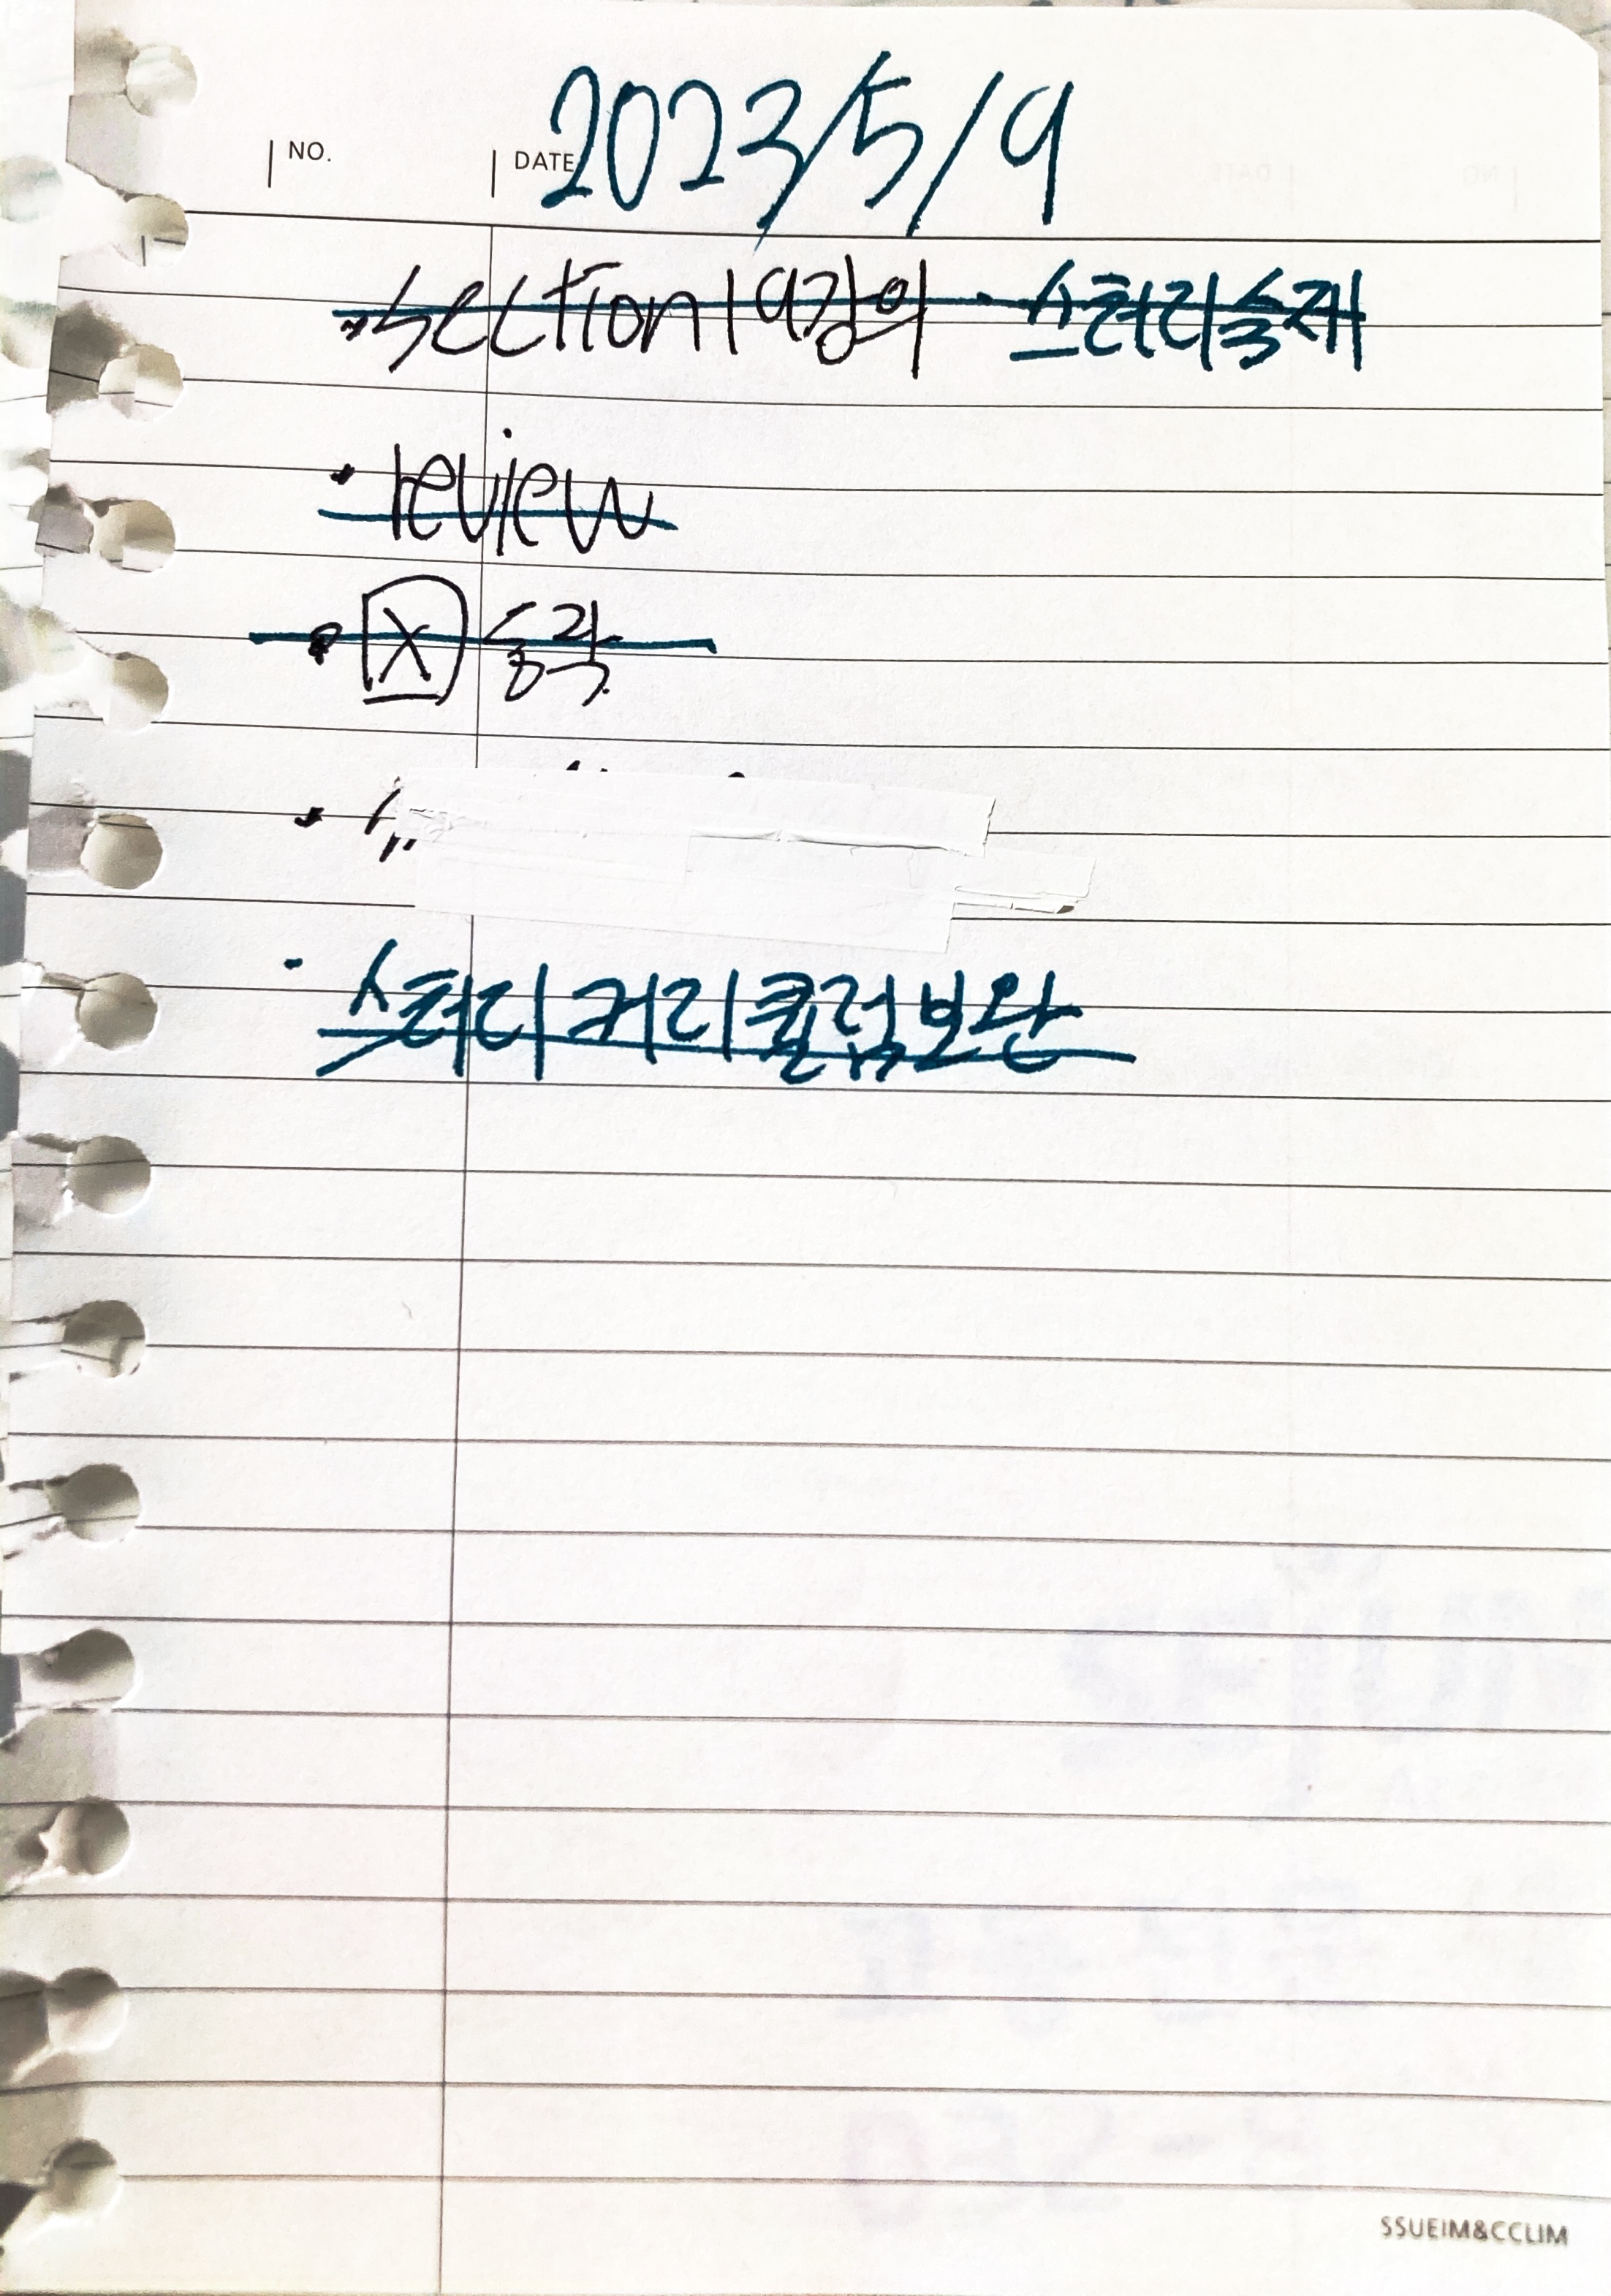 NO. DATE 2023/5/9
section 19강의 · 스터디숙제
· review
· X
· 스터디 커리큘럼 보완
SSUEIM&CCLIM